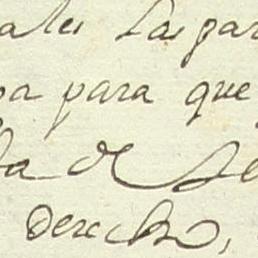 ales las par
pa para que
la de Se
Derecho,